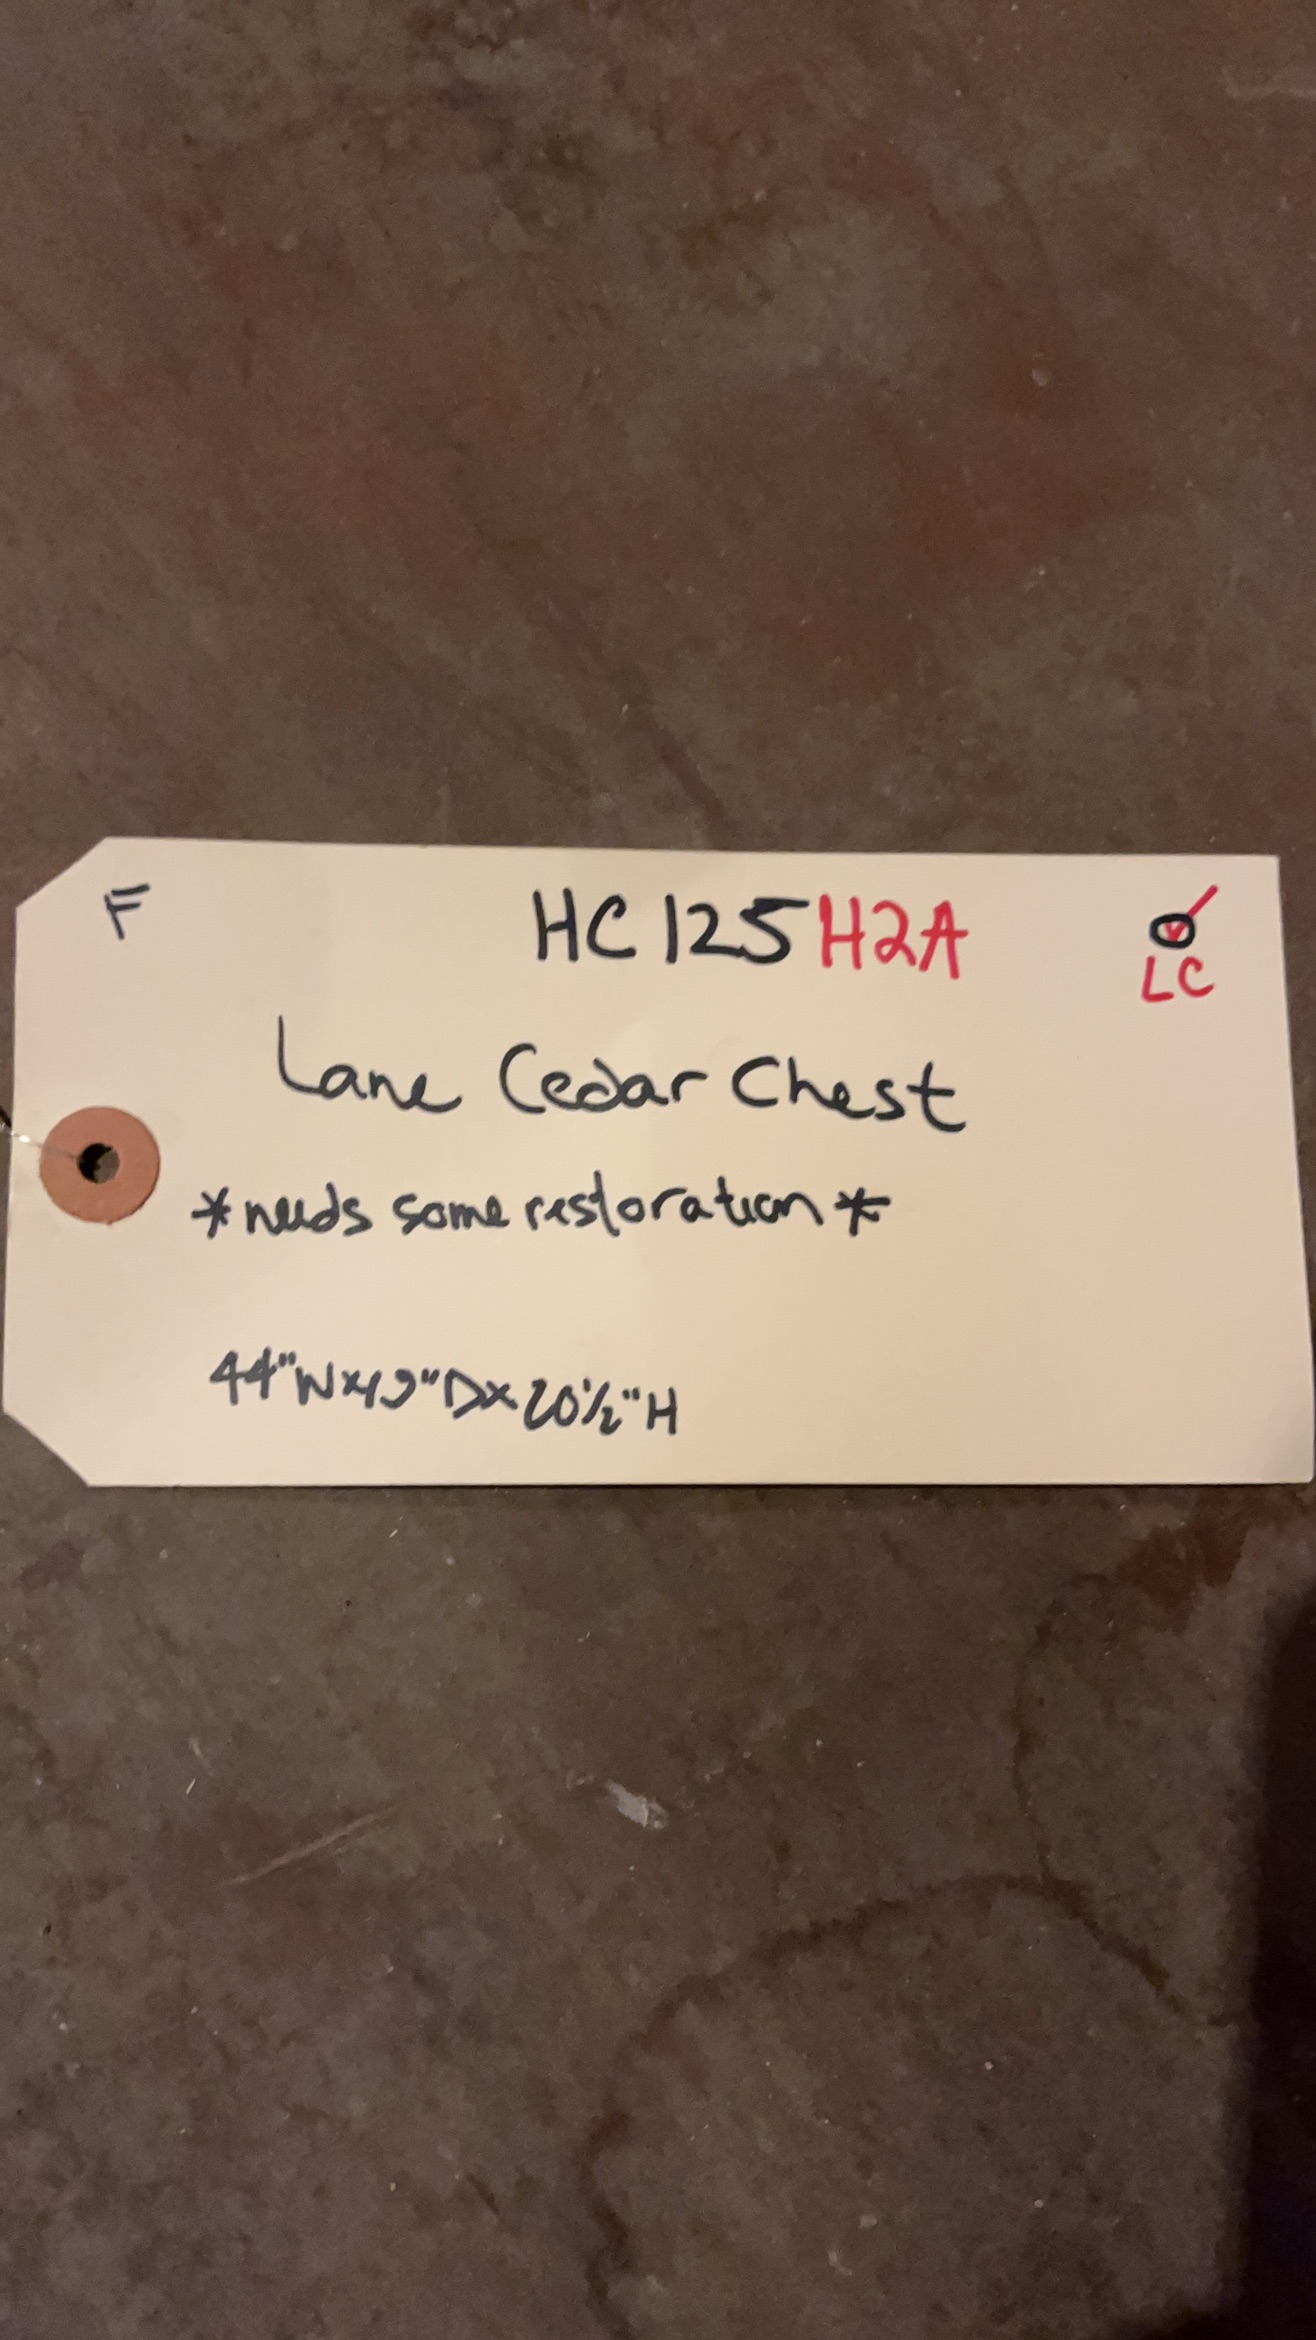 F
HC125H2A
LC
Lane Cedar Chest
*needs some restoration*
44"Wx19"Dx20½"H